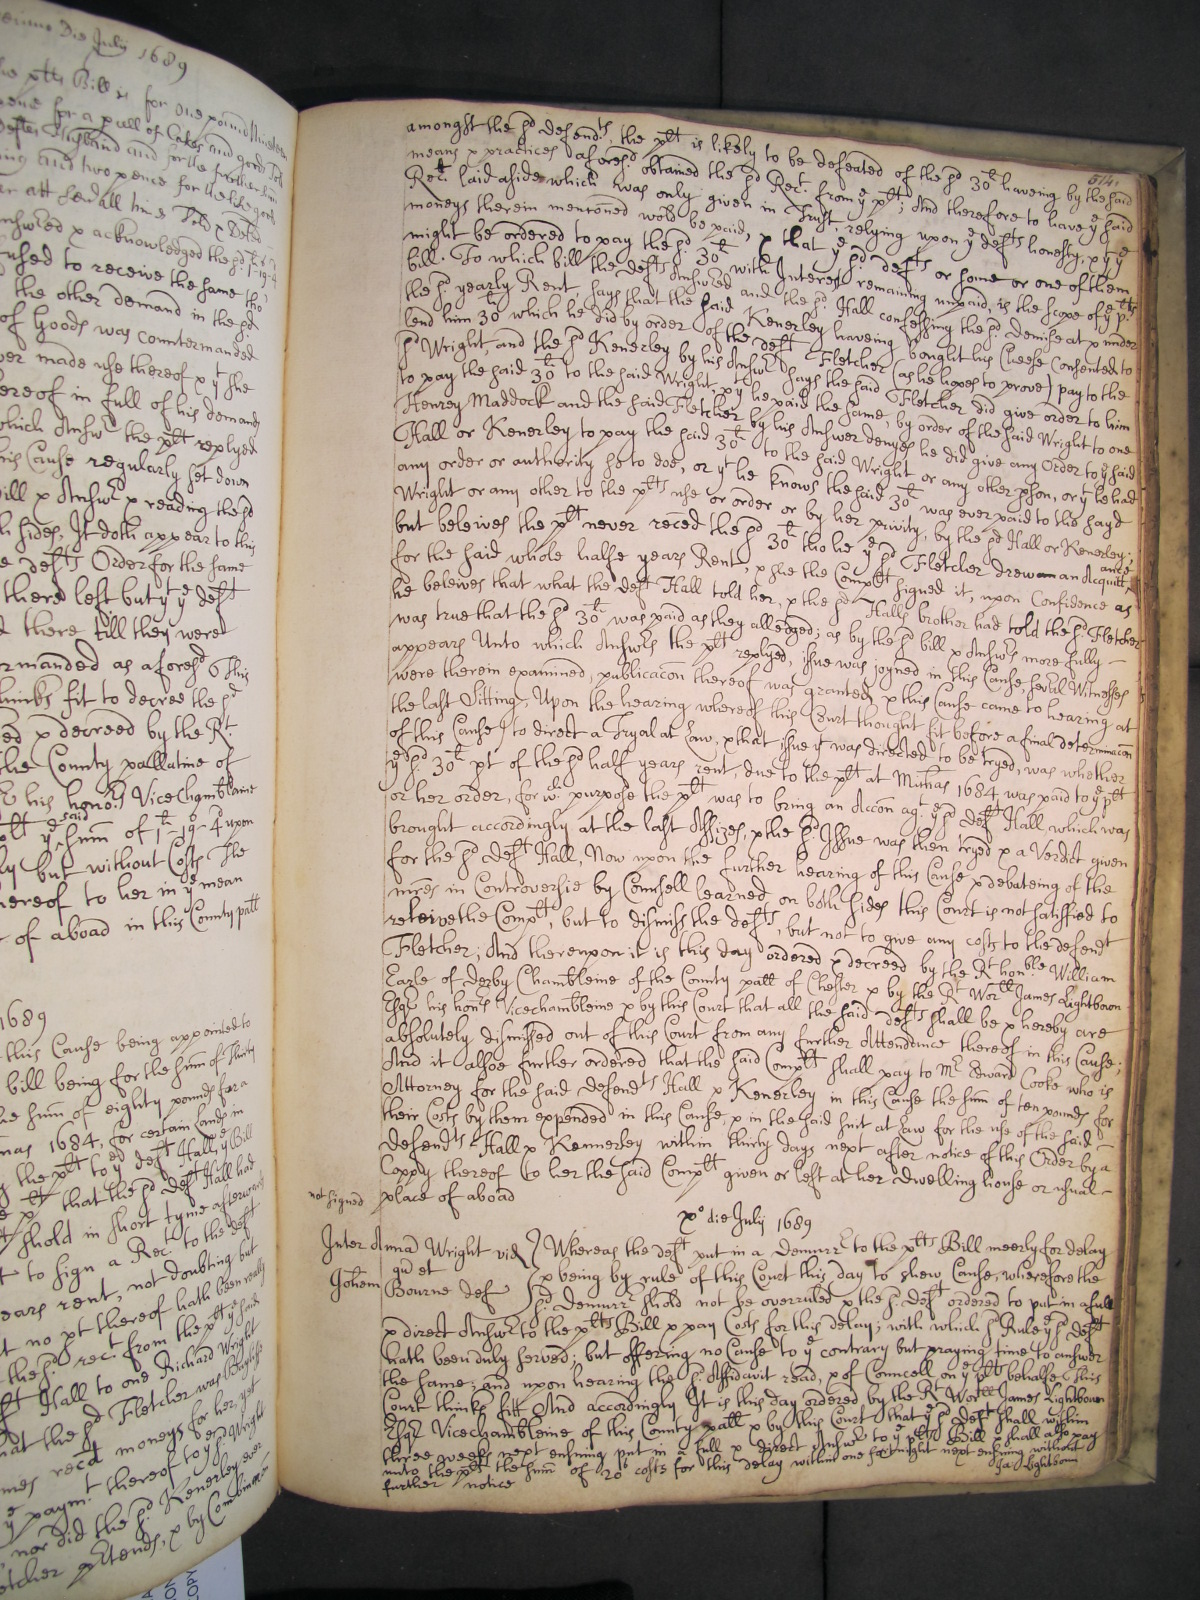 Die July 1689
the pltts Bill is for one pound Nineteen
pence for a pcell of Cakes and goods Sold
defts Husband and for the further sum
and two pence for the like goods
att sevall times Sold & Deted
answered & acknowledged the sd 1-19-4
used to receive the same tho
the other demand in the sd
of Goods was countermanded
ver made use thereof & yt She
ereof in full of his demand
which Answr the pltt replyed
his Cause regularly set down
bill & Answr & reading the sd
h sides, It doth appear to this
e defts Order for the same
there left but yt ye deft
d there till they were
ermanded as aforesd This
thinks fit to decree the sd
ed & decreed by the Rt
the County pallatine of
& his honors Vice Chamblaine
ltt ye said sum of 1li-19-4d upon
ly but without Costs The
hereof to her in ye mean
of aboad in this County patt
1689
this Cause being appointed to
bill being for the sum of Thirty
he sum of eighty pounds for a
mas 1684, for certain lands in
the pltt to ye sd deft Hall, ye Bill
that the sd deft Hall had
shold in short tyme afterwards
t to sign a Rect. to the deft
ears rent, not doubting but
t no pt thereof hath been really
the sd. rect. from the pltt ye said
ft Hall to one Richard Wright
hat the sd Fletcher was
mes recd moneys for her, yet
ye paymt. thereof to ye sd Wright
nor did the sd. Kenerley ever
etcher pretends, & by Combinacon
514.
amongst the sd defendts the pltt is likely to be defeated of the sd 30li haveing by the said
means & practices aforesd obtained the sd Rect. from ye pltt; And therefore to have ye said
Rect. laid aside which was only given in Trust, relying upon ye defts honesty, & yt ye
moneys therein mentoned wold be paid, & that ye sd. defts or some or one of them
might be ordered to pay the sd. 30li with Interest remaining unpaid, is the scope of ye plts
bill. To which bill the defts Answred and the sd. Hall confessing the sd. demise at & under
the sd yearly Rent, says that the said Kenerley haveing bought his Cheese Consented to
lend him 30li which he did by order of the deft Fletcher (as he hopes to prove) pay to the
sd Wright, and the sd Kenerley by his Answr says the said Fletcher did give order to him
to pay the said 30li to the said Wright, & yt he paid the same, by order of the said Wright to one
Henrey Maddock and the said Fletcher by his Answer denyes he did give any Order to ye said
Hall or Kenerley to pay the said 30li to the said Wright or any other pson, or yt he had
any order or authority so to doe, or yt he knows the said 30li was ever paid to the sayd
Wright or any other to the pltts use or order or by her privity, by the sd Hall or Kenerley;
but beleives the pltt never reced the sd 30li tho he ye sd Fletcher drew an Acquittance
for the said whole halfe years Rent, & she the Compltt signed it, upon Confidence as
he beleives that what the deft Hall told her, & the sd Halls brother had told the sd. Fletcher
was true that the sd 30li was paid as they alledged; as by the sd bill & Answrs more fully
appears Unto which Answrs the pltt replyed, issue was joyned in this Cause, sevrll Witnesses
were therein examined, publicacon thereof was granted, & this Cause came to hearing at
the last Sitting, Upon the hearing whereof this Court thought fit before a final determinacon
of this Cause to direct a Tryal at Law, & that issue yt was directed to be tryed, was whether
ye sd. 30li pt of the sd half years rent, due to the pltt at Michas 1684 was paid to ye pltt
or her order, for wch purpose the pltt was to bring an Accon agt. ye sd deft Hall, which was
brought accordingly at the last Assizes, & the sd. Issue was then tryed & a Verdict given
for the sd deft Hall, Now upon the further hearing of this Cause & debateing of the
mres in Controversie by Counsell learned on both sides this Court is not satisfied to
releive the Compltt, but to dismiss the defts, but not to give any costs to the defendt
Fletcher; And thereupon it is this day ordered & decreed by the Rt honble William
Earle of Derby Chambleine of the County patt of Chester & by the Rt Worll James Lightboun
Esqr his honrs Vicechambleine & by this Court that all the said defts shall be & hereby are
absolutely dismissed out of this Court from any further Attendance thereof in this Cause;
And it alsoe further ordered that the said Compltt shall pay to Mr. Edward Cooke who is
Attorney for the said defendts Hall & Kenerley in this Cause the sum of ten pounds for
their Costs by them expended in this Cause, & in the said suit at Law for the use of the said
defendts Hall & Kennerley within thirty days next after notice of this Order by a
Coppy thereof to her the said Compltt given or left at her dwelling house or usual
place of aboad
not signed
xo die July 1689
Inter Anna Wright vid
qu et
Gosem Bourne def
Whereas the deft put in a Demurrr to the pltts Bill meerly for delay
& being by rule of this Court this day to shew Cause, wherefore the
sd. Demurrr shold not be overruled & the sd. deft ordered to put in a full
& direct Answr to the pltts Bill & pay Costs for this delay; with which sd Rule ye sd deft
hath been duly served; but offering no Cause to ye contrary but praying time to answer
the same; and upon hearing the sd. Affidavit read, & of Councell on ye pltts behalfe this
Court thinks fitt And accordingly It is this day ordered by the Rt Worll James Lightboun
Esqr Vicechambleine of this County patt & by this Court that ye sd deft shall within
three weeks next ensuing put in a full & direct Answr to ye pltts Bill & shall also pay
unto the pltt the sum of 20s costs for this delay within one fortnight next ensuing without
further notice
Ja: Lightboun